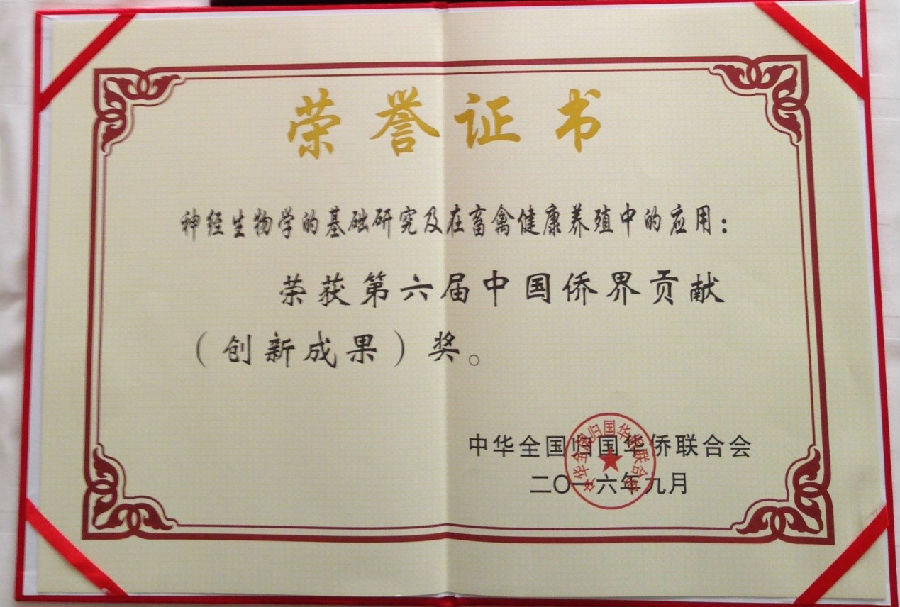 荣誉证书
神经生物学的基础研究及在畜禽健康养殖中的应用：
荣获第六届中国侨界贡献
（创新成果）奖。
中华全国归国华侨联合会
二〇一六年九月
中华全国归国华侨联合会